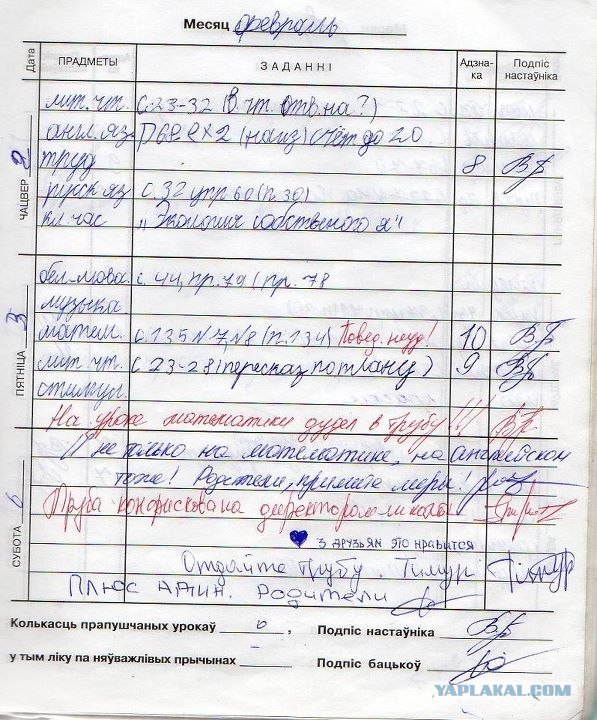 Месяц февраль
Дата ПРЕДМЕТЫ ЗАДАННІ Адзнака Подпіс настаўніка
ЧАЦВЕР 2
лит. чт. с. 23-32 (В. чт. отв. на?)
англ. яз.
труд 8 ВБ
русск. яз с. 32 упр 60 (п. 30)
кл. час „Экология собственого я"
ПЯТНІЦА 3
бел. мова. с. 44, пр. 79 (пр. 78
музыка.
матем. с. 135 N7, N8 (п. 134) Повед. неуд! 10 ВБ
лит. чт. с. 23-28 (пересказ по плану) 9 ВБ
стимул.
На уроке математики дудел в трубу!!! ВБ
СУБОТА 6
И не только на математике, на английском
тоже! Родители, примите меры!
Труба конфискована директором школы!
3 друзьям это нравится
Отдайте трубу. Тимур Тимур
Плюс адин. Родители
Колькасць прапушчаных урокаў 0, Подпіс настаўніка ВБ
у тым ліку па няўважлівых прычынах Подпіс бацькоў
YAPLAKAL.COM